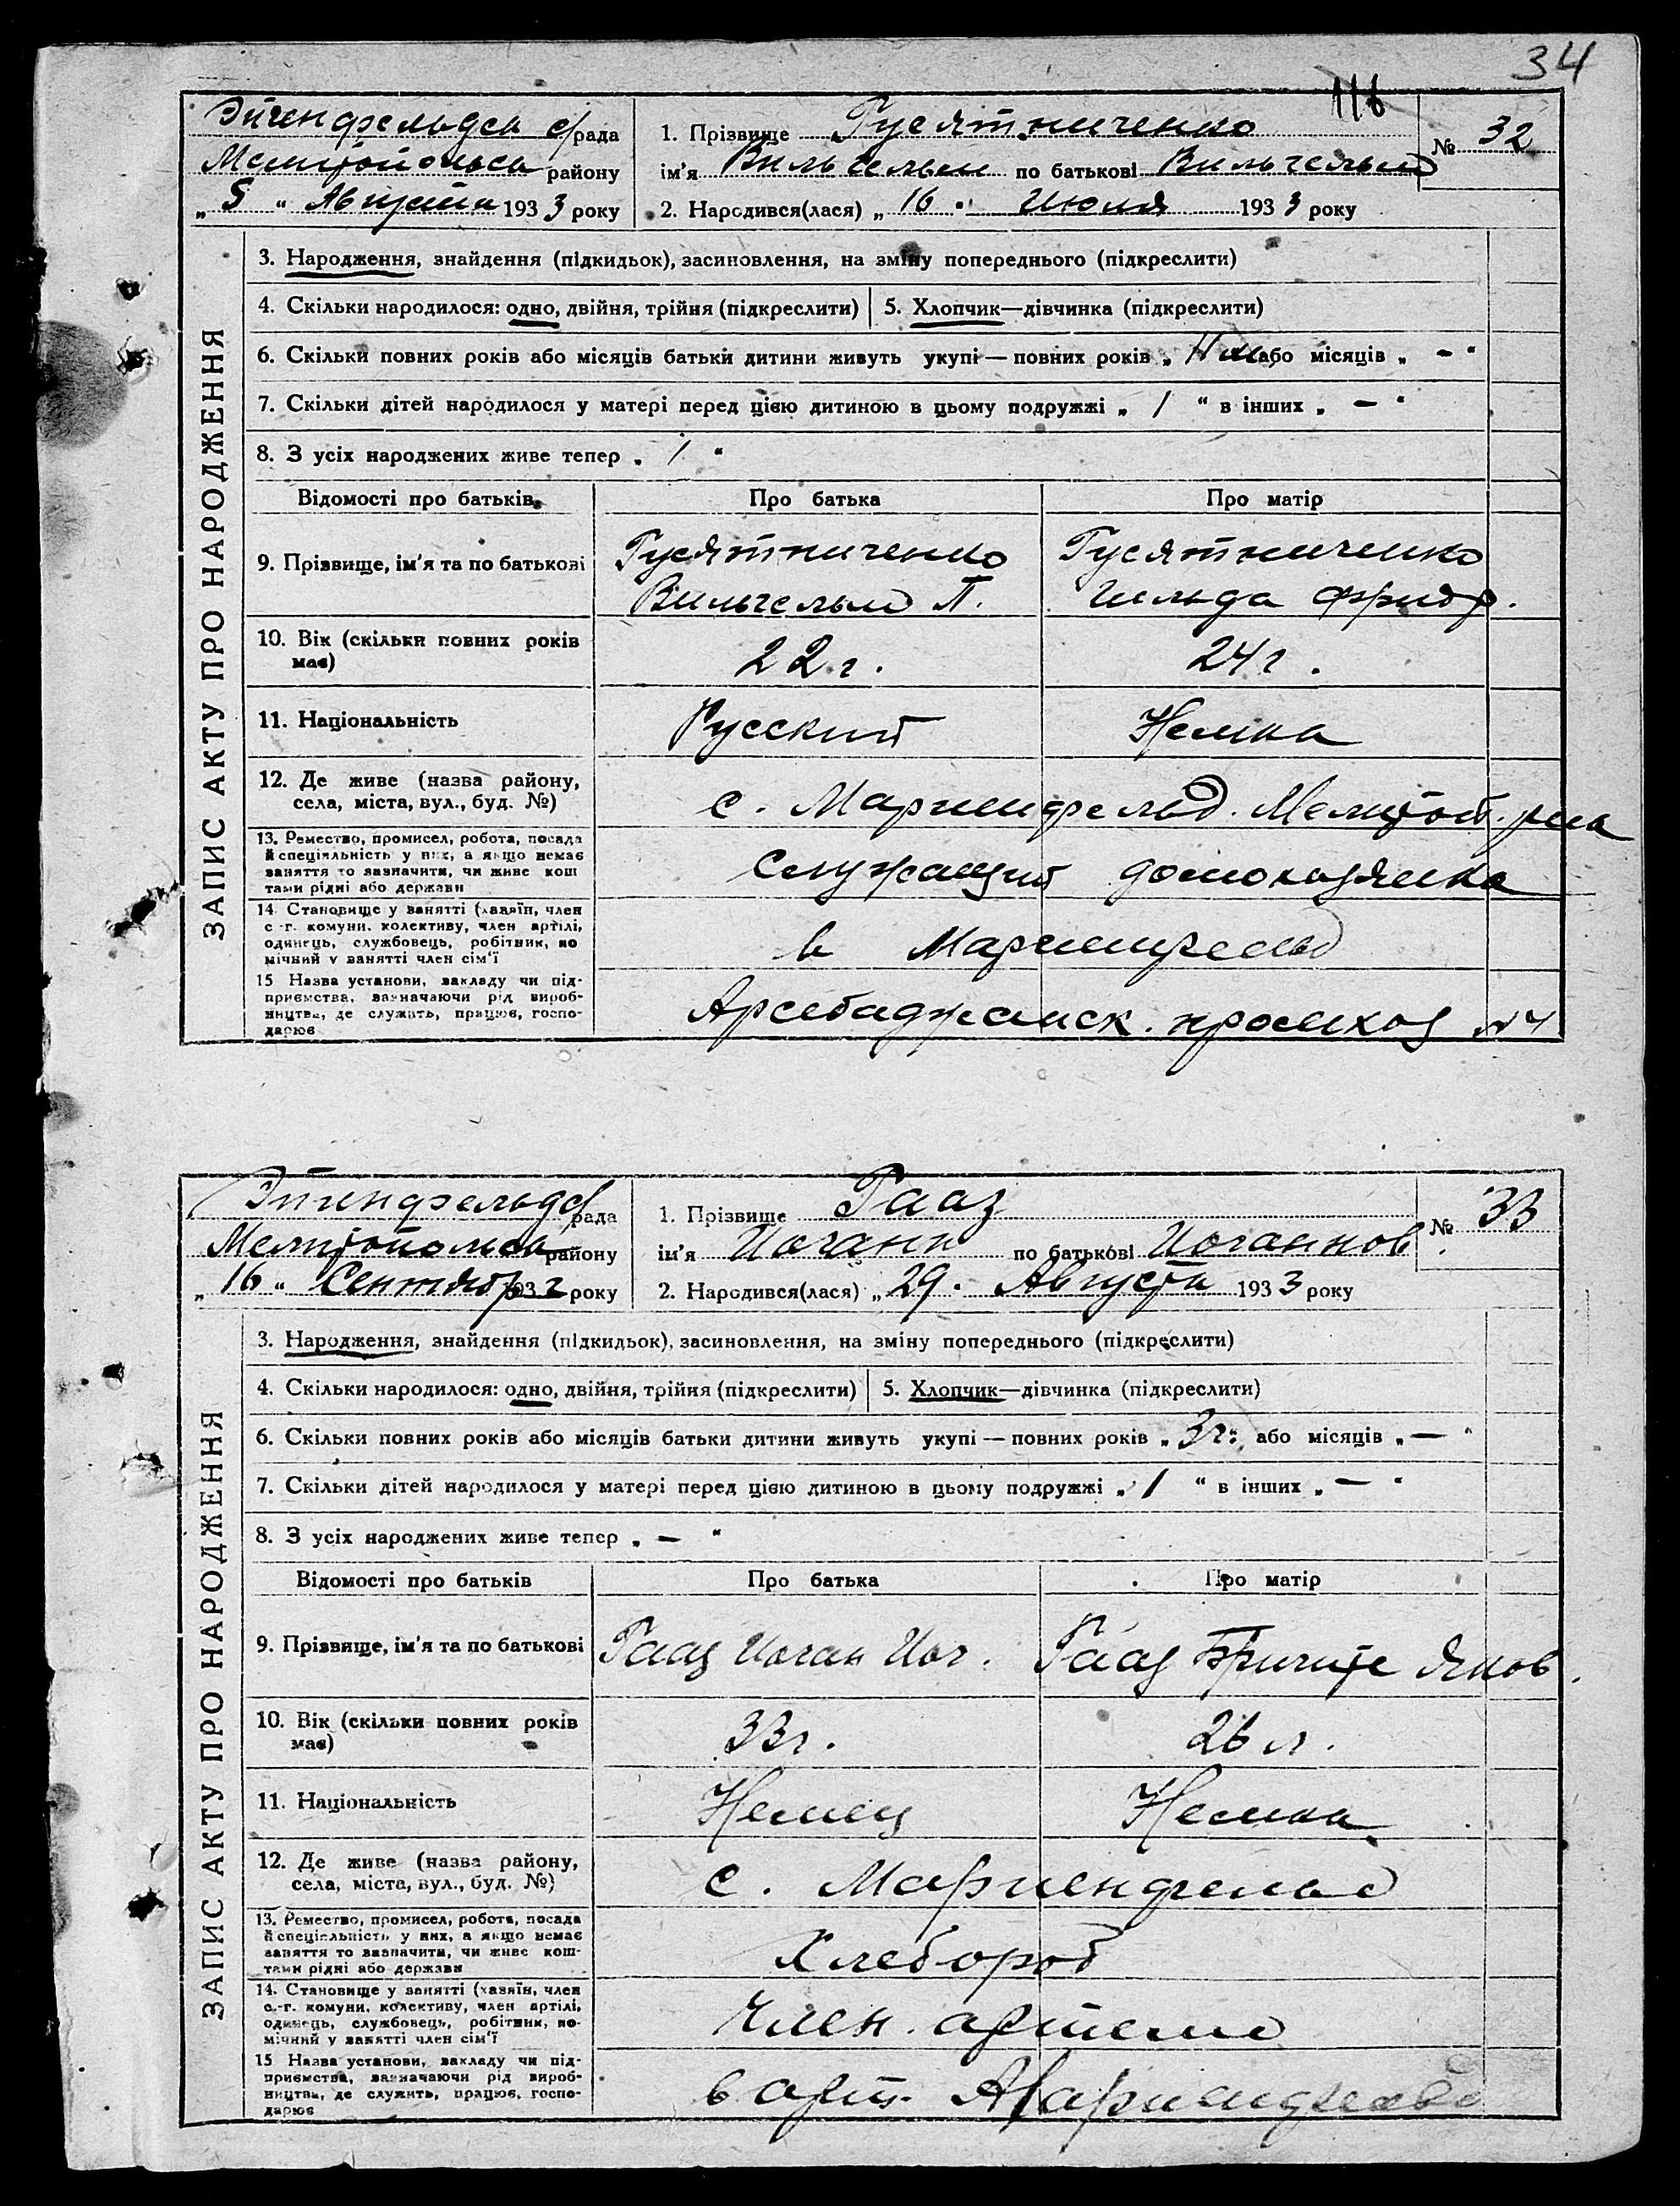 34
116
Эйгенфельдск с/рада
Мелитопольск району
„ 5 “ Августа 1933 року
1. Прізвище Гусятниченко
ім'я Вильгельм по батькові Вильгельм
2. Народився(лася) „ 16 “ Июля 1933 року
№ 32
ЗАПИС АКТУ ПРО НАРОДЖЕННЯ
3. Народження, знайдення (підкидьок), засиновлення, на зміну попереднього (підкреслити)
4. Скільки народилося: одно, двійня, трійня (підкреслити) 5. Хлопчик—дівчинка (підкреслити)
6. Скільки повних років або місяців батьки дитини живуть укупі — повних років „ або місяців „ – “
7. Скільки дітей народилося у матері перед цією дитиною в цьому подружжі „ 1 “ в інших „ – “
8. З усіх народжених живе тепер „ 1 “
Відомості про батьків Про батька Про матір
9. Прізвище, ім'я та по батькові Гусятниченко Вильгельм П. Гусятниченко Гильда Фридр.
10. Вік (скільки повних років має) 22 г. 24 г.
11. Національність Русский Немка
12. Де живе (назва району, села, міста, вул., буд. №) с. Мариенфельд. Мелитоп. р-на
13. Ремество, промисел, робота, посада й спеціяльність у них, а якщо немає заняття то зазначити, чи живе коштами рідні або держави Служащий домохозяйка
14. Становище у занятті (хазяїн, член с.-г. комуни, колективу, член артілі, одинець, службовець, робітник, помічний у занятті член сім'ї в Мариенфельд
15 Назва установи, закладу чи підприємства, зазначаючи рід виробництва, де служить, працює, господарює №4
Эйгенфельдс/рада
Мелитопольск району
„ 16 “ Сентябр 193 року
1. Прізвище Гааз
ім'я Иоганн по батькові Иоганнов
2. Народився(лася) „ 29 “ Августа 1933 року
№ 33
ЗАПИС АКТУ ПРО НАРОДЖЕННЯ
3. Народження, знайдення (підкидьок), засиновлення, на зміну попереднього (підкреслити)
4. Скільки народилося: одно, двійня, трійня (підкреслити) 5. Хлопчик—дівчинка (підкреслити)
6. Скільки повних років або місяців батьки дитини живуть укупі — повних років „ 3 г. “ або місяців „ — “
7. Скільки дітей народилося у матері перед цією дитиною в цьому подружжі „ 1 “ в інших „ — “
8. З усіх народжених живе тепер „ – “
Відомості про батьків Про батька Про матір
9. Прізвище, ім'я та по батькові Гааз Иоган Иог. Гааз Бригите Яков.
10. Вік (скільки повних років має) 33 г. 26 л.
11. Національність Немец Немка
12. Де живе (назва району, села, міста, вул., буд. №) с. Мариенфельд
13. Ремество, промисел, робота, посада й спеціяльність у них, а якщо немає заняття то зазначити, чи живе коштами рідні або держави Хлебороб
14. Становище у занятті (хазяїн, член с.-г. комуни, колективу, член артілі, одинець, службовець, робітник, помічний у занятті член сім'ї Член артели
15 Назва установи, закладу чи підприємства, зазначаючи рід виробництва, де служить, працює, господарює в арт. Мариенфельд